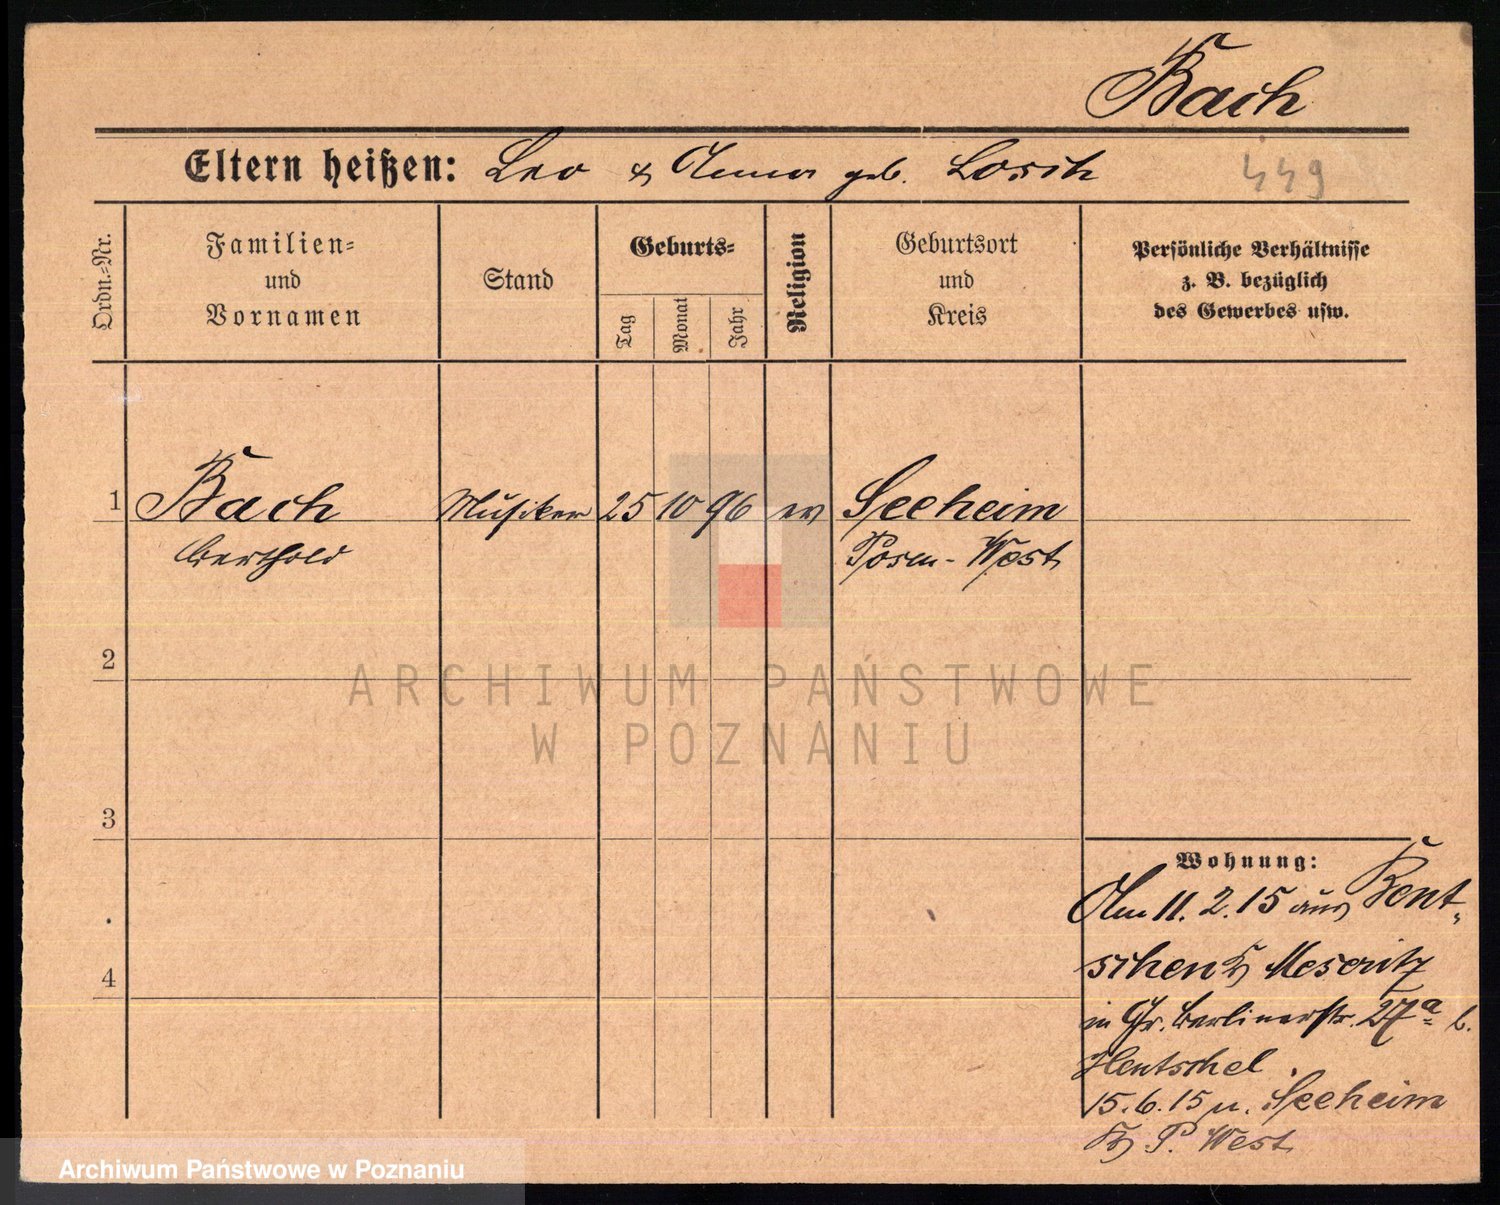 Bach
Eltern heißen: Leo & Anna geb. Losch
449
Ordn.=Nr.
Familien=
und
Vornamen
Stand
Geburts=
Tag
Monat
Jahr
Religion
Geburtsort
und
Kreis
Persönliche Verhältnisse
z. B. bezüglich
des Gewerbes usw.
1 Bach Musiker 25 10 96 ev Seeheim
Berthold Posen-West
2
ARCHIWUM PAŃSTWOWE
W POZNANIU
3
Wohnung:
Am 11. 2. 15 aus Bent-
schen Kr Meseritz
4
in Gr. Berlinerstr. 27a b.
Hentschel.
15.6.15 n. Seeheim
Kr P. West
Archiwum Państwowe w Poznaniu